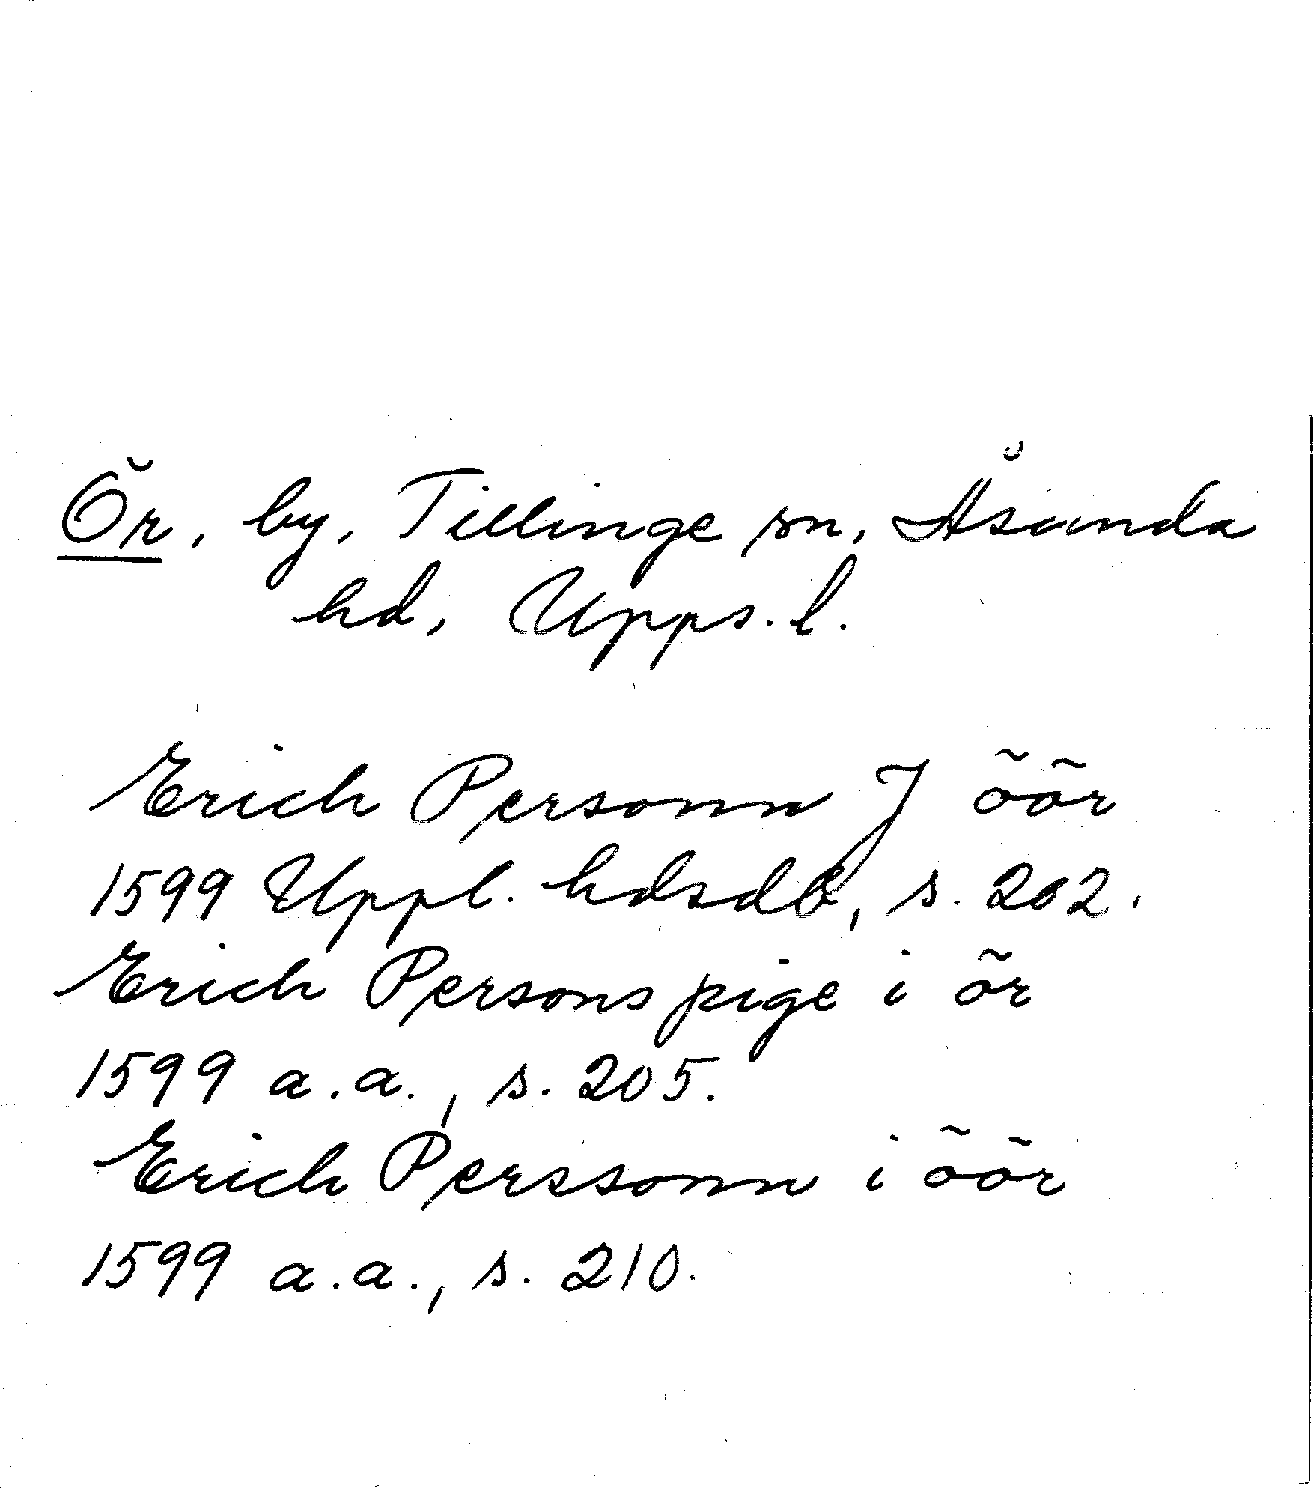 Ör, by, Tillinge sn, Åsunda
hd, Upps. l.
Erich Personn J öör
1599 Uppl. hdsdb, s. 202.
Erich Persons pige i ör
1599 a.a., s. 205.
Erich Perssonn i öör
1599 a.a., s. 210.